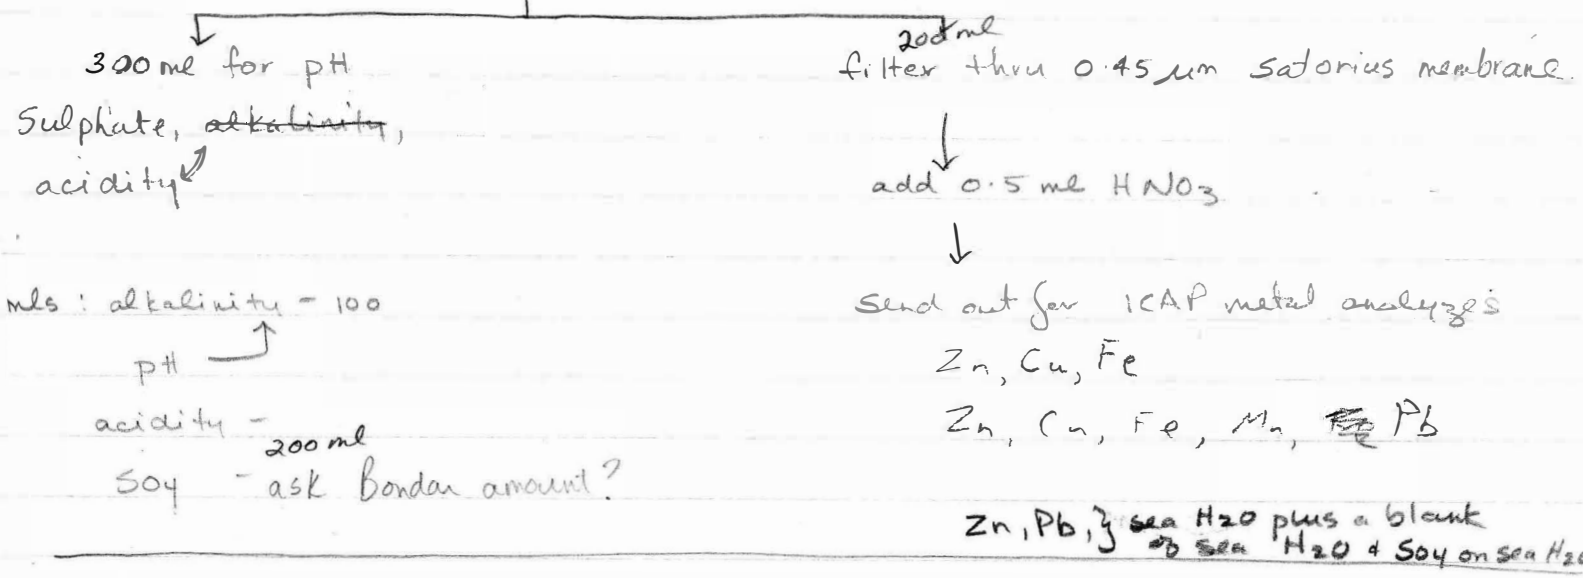 300 ml for pH
Sulphate, alkalinity,
acidity
mls : alkalinity - 100
pH
acidity -
200 ml
SO4 - ask Bondar amount?
200 ml
filter thru 0.45 µm Satorius membrane.
add 0.5 ml HNO3
Send out for ICAP metal analyzes
Zn, Cu, Fe
Zn, Cu, Fe, Mn, Pb
Zn, Pb, } sea H2O plus a blank
of sea H2O & SO4 on sea H2O